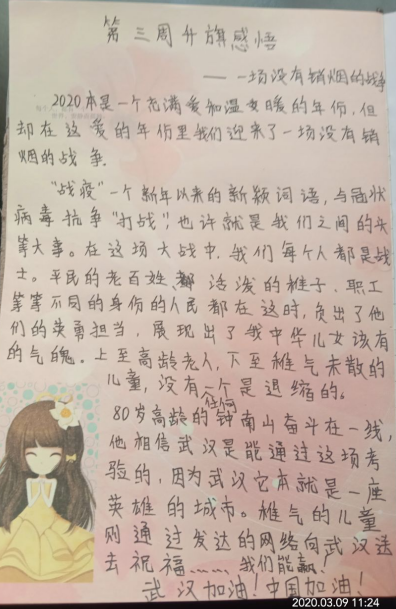 第三周升旗感悟
——一场没有销烟的战争
2020本是一个充满爱和温暖的年份,但
却在这爱的年份里我们迎来了一场没有销
烟的战争.
"战疫"一个新年以来的新颖词语,与冠状
病毒抗争"打战",也许就是我们之间的头
等大事。在这场大战中,我们每个人都是战
士。平民的老百姓、活泼的稚子、职工
等等不同的身份的人民都在这时,负出了他
们的英勇担当,展现出了我中华儿女该有
的气魄。上至高龄老人,下至稚气未散的
儿童,没有任何一个是退缩的。
80岁高龄的钟南山奋斗在一线,
他相信武汉是能通过这场考
验的,因为武汉它本就是一座
英雄的城市。稚气的儿童
则通过发达的网络向武汉送
去祝福……我们能赢!
武汉加油!中国加油!
2020.03.09 11:24